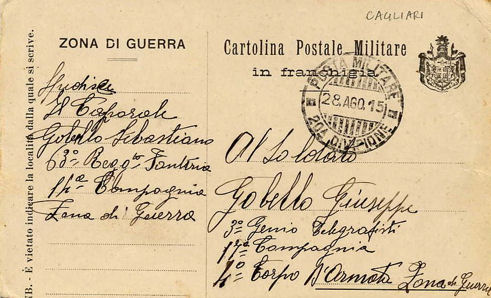 CAGLIARI
ZONA DI GUERRA
Cartolina Postale Militare
in franchigia
POSTA MILITARE
28.AGO.15
20A DIVISIONE
NB. - È vietato indicare la località dalla quale si scrive.
Spedisce
Il Caporale
Gobello Sebastiano
63° Regg.to Fanteria
11a Compagnia
Zona di Guerra
Al Soldato
Gobello Giuseppe
3° Genio Telegrafisti
11a Compagnia
4° Corpo D'Armata Zona di Guerra